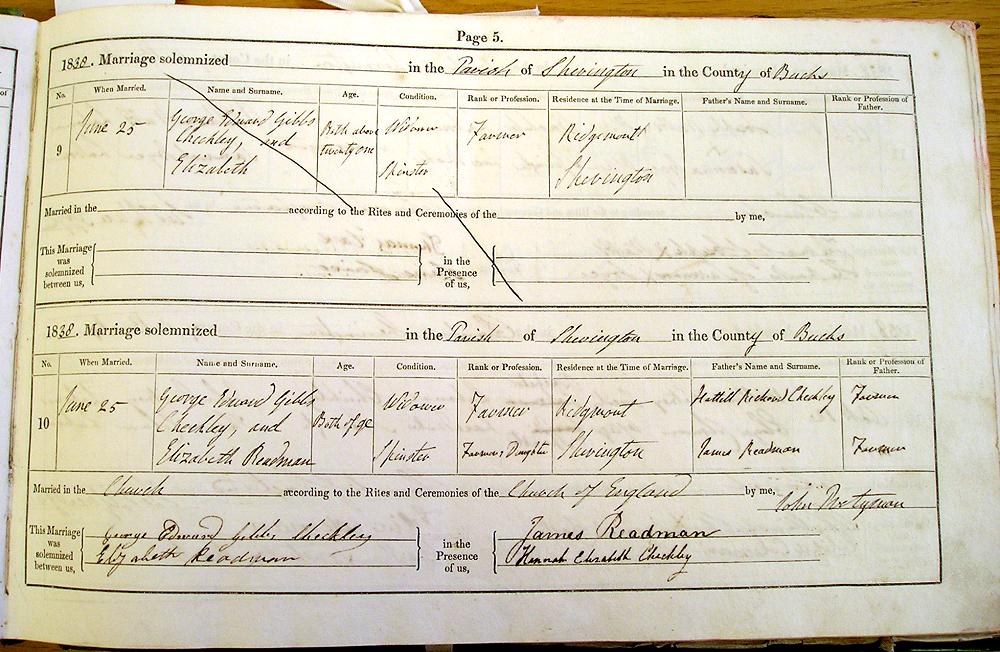 Page 5.
1838. Marriage solemnized in the Parish of Sherington in the County of Bucks
No. When Married. Name and Surname. Age. Condition. Rank or Profession. Residence at the Time of Marriage. Father's Name and Surname. Rank or Profession of Father.
9 June 25 George Edward Gibbs Checkley, and Both above twenty one Widower Farmer Ridgemount
Elizabeth Spinster Sherington
Married in the according to the Rites and Ceremonies of the by me,
This Marriage was solemnized between us, in the Presence of us,
1838. Marriage solemnized in the Parish of Sherington in the County of Bucks
No. When Married. Name and Surname. Age. Condition. Rank or Profession. Residence at the Time of Marriage. Father's Name and Surname. Rank or Profession of Father.
10 June 25 George Edward Gibbs Checkley, and Both of age Widower Farmer Ridgmont Richard Checkley Farmer
Elizabeth Readman Spinster Farmers Daughter Sherington James Readman Farmer
Married in the Church according to the Rites and Ceremonies of the Church of England by me, John
This Marriage was solemnized between us, George Edward Gibbs Checkley in the Presence of us, James Readman
Elizabeth Readman Hannah Elizabeth Checkley